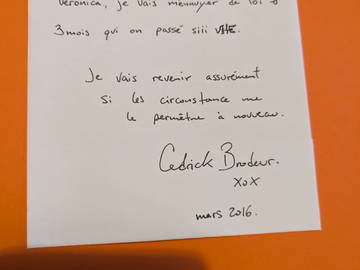 Veronica, je vais m'ennuyer de toi
3 mois qui on passé siii VITE.
Je vais revenir assurément
si les circonstance me
le permêtre à nouveau.
Cedrick Brodeur.
xox
mars 2016.